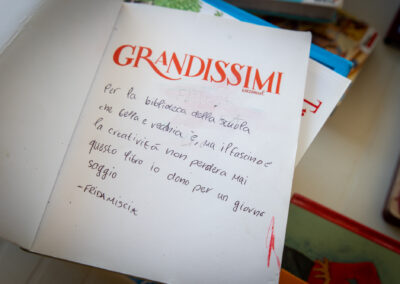 GRANDISSIMI
Per la biblioteca della scuola
che bella e vecchia è, ma il fascino e
la creatività non perderà mai
questo libro io dono per un giorno
saggio
-FRIDA MISCIA